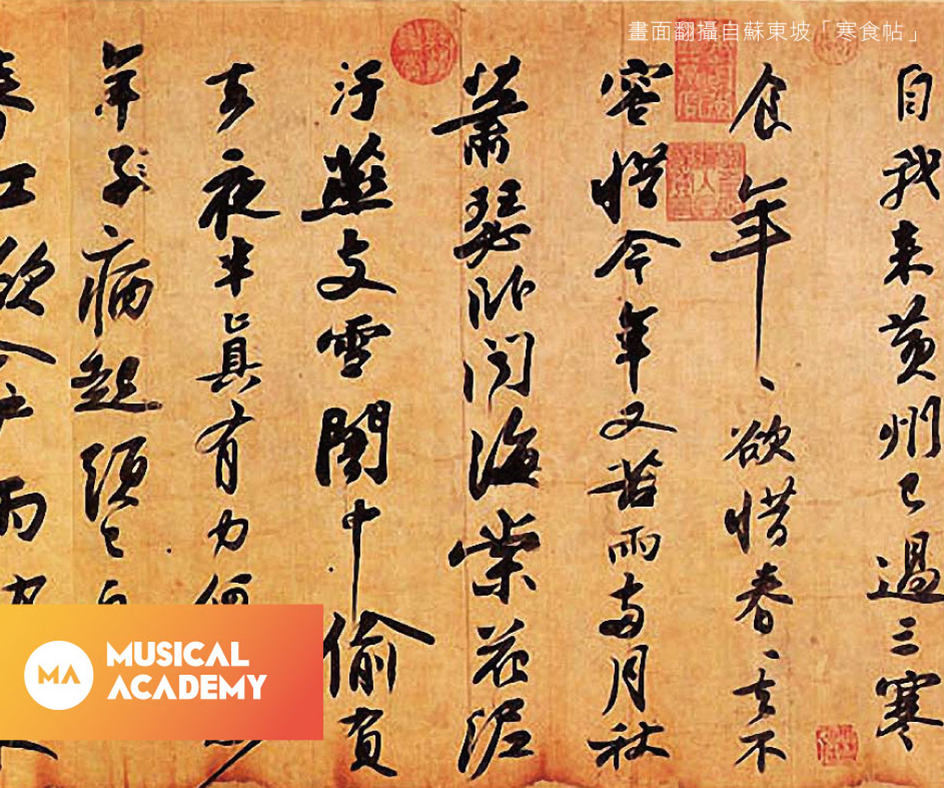 畫面翻攝自蘇東坡「寒食帖」
自我来黄州已過三寒
食年〻欲惜春〻去不
容惜今年又苦雨兩月秋
蕭瑟卧聞海棠花泥
汙燕支雪闇中偷負
去夜半真有力何
年子病起頭已
春江欲入户雨
MA
MUSICAL
ACADEMY